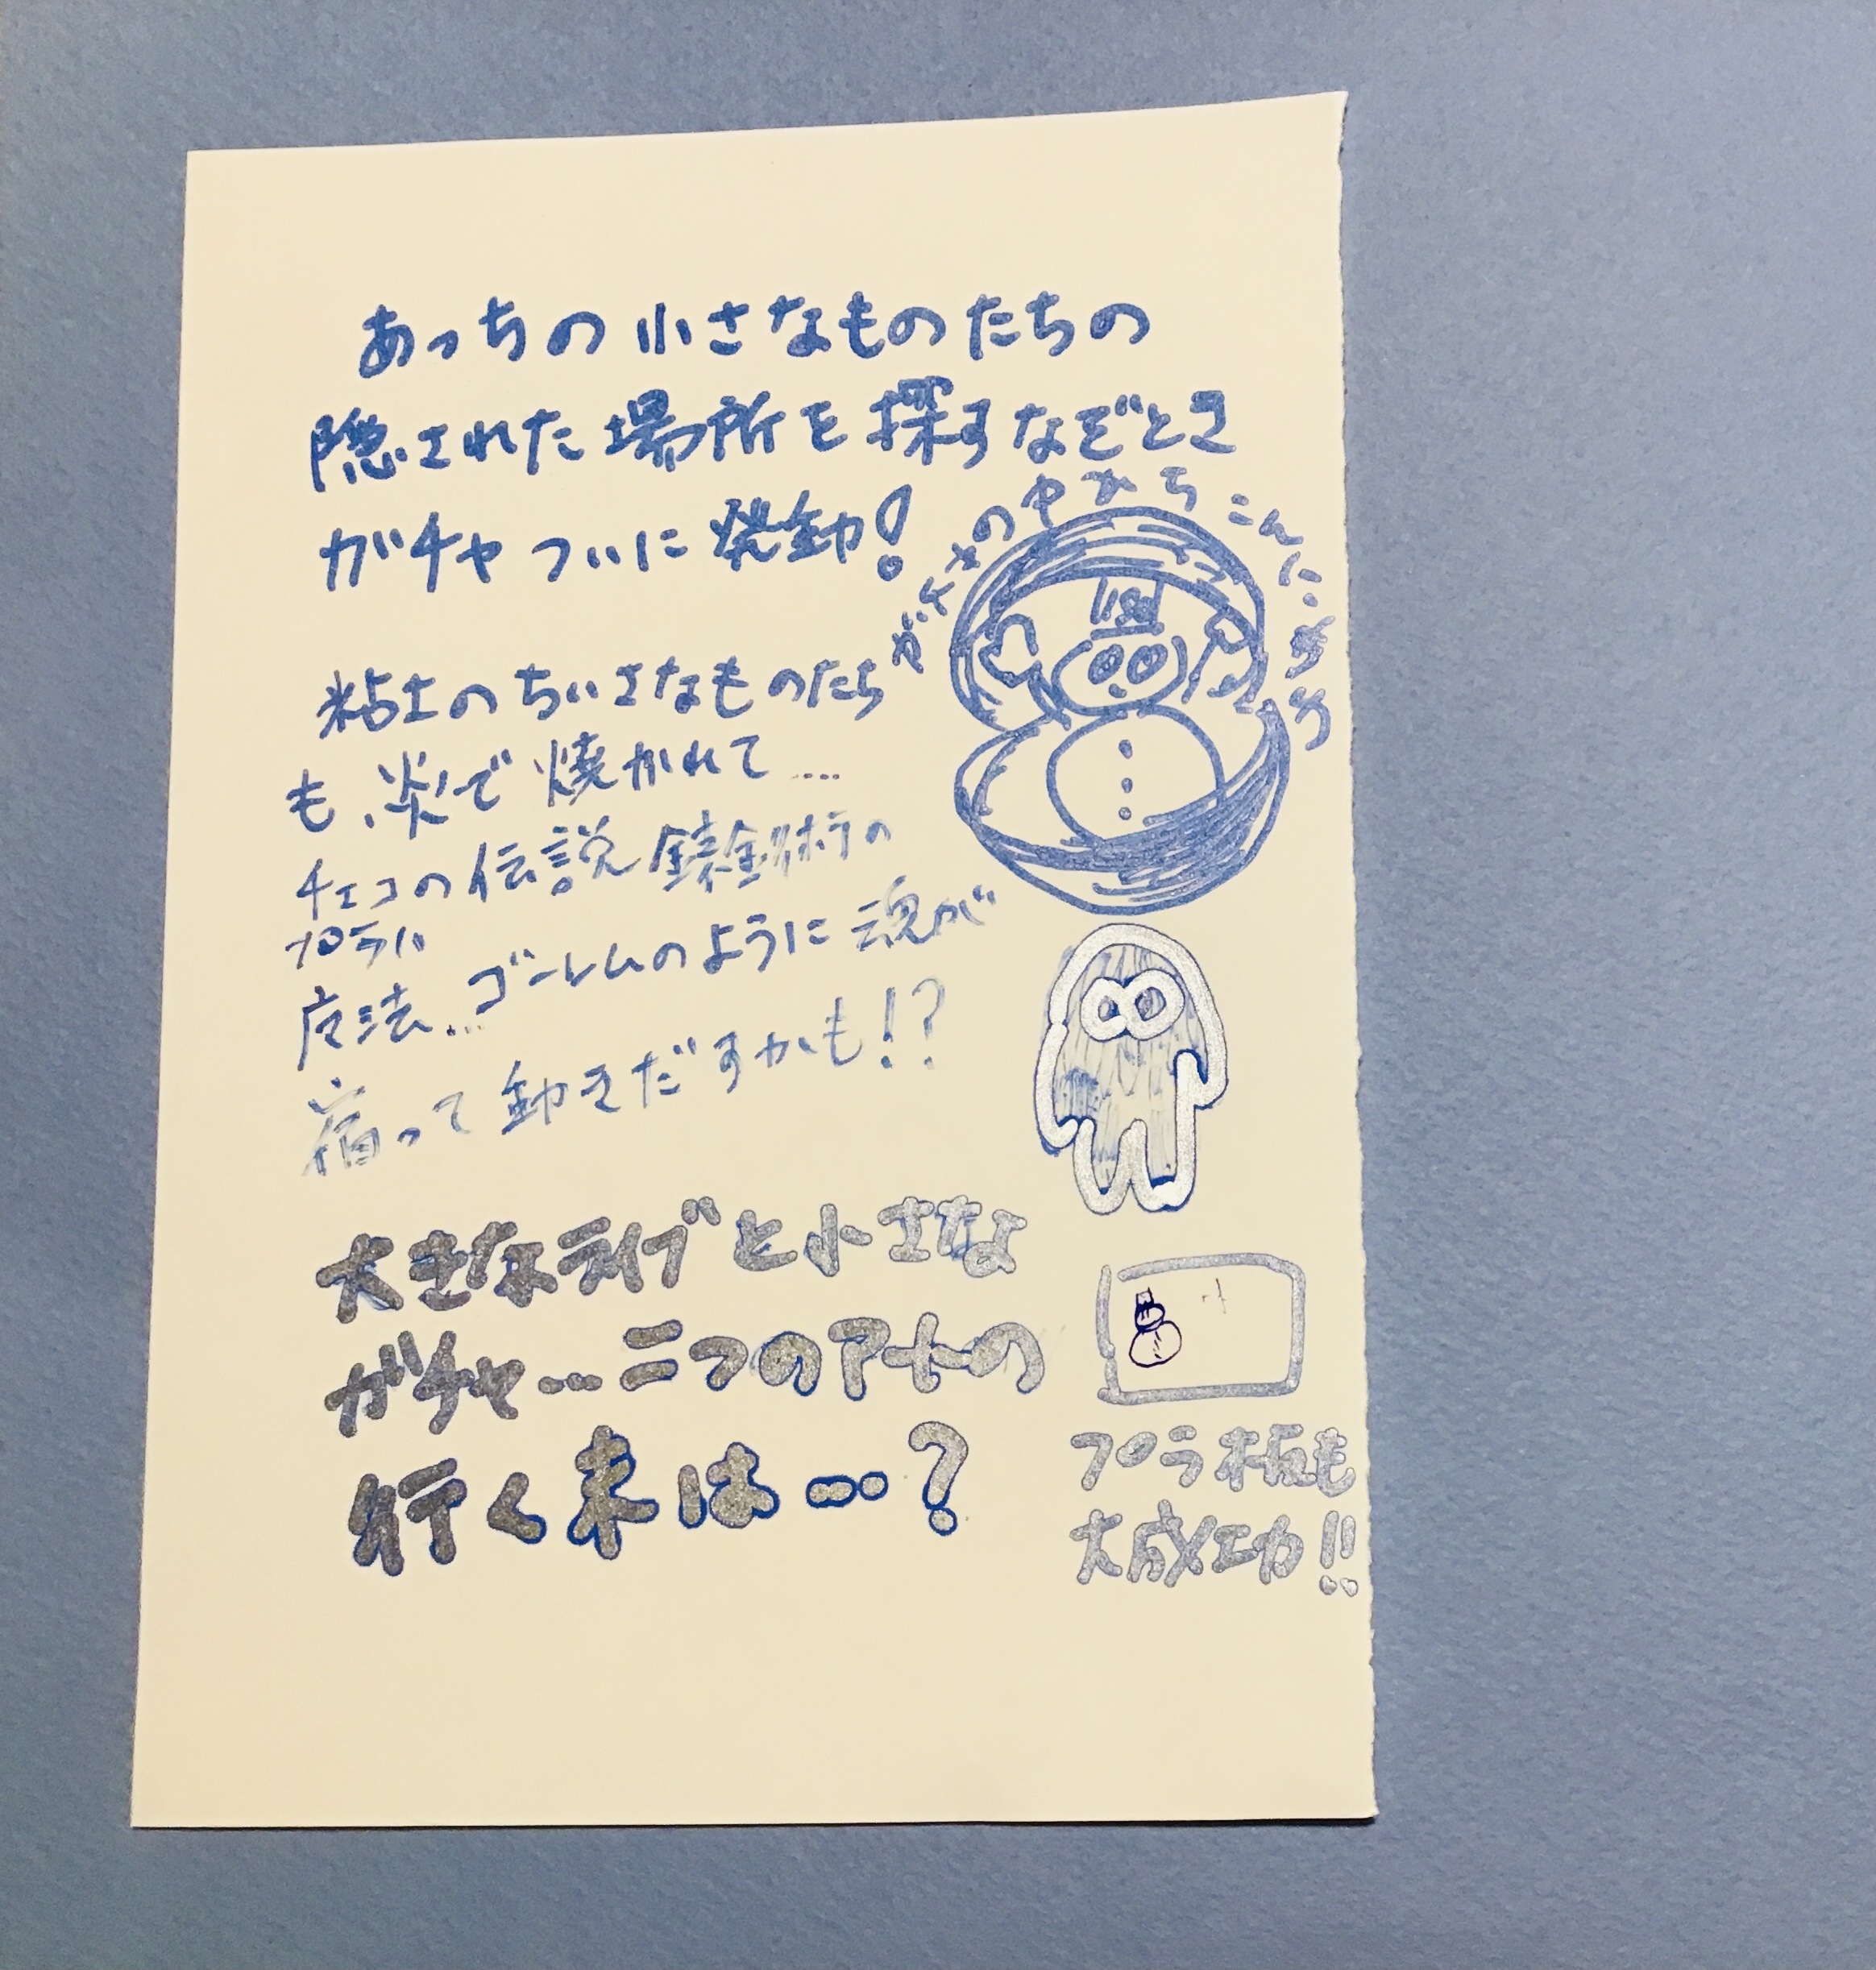 あっちの小さなものたちの
隠された場所を探すなぞとき
ガチャついに発動!
ガチャのやかたちこんにまっ
粘土のちいさなものたち
も、炎で焼かれて…
チェコの伝説 錬金術の
プラハ
魔法…ゴーレムのように魂が
宿って動きだすかも!?
大きなライブと小さな
ガチャ…二つのアートの
行く末は…?
プラ板も
大成功!!